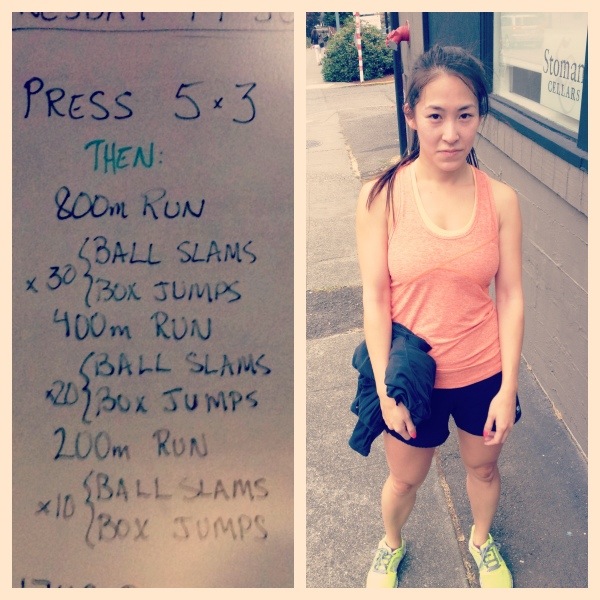 PRESS 5x3
THEN:
800m RUN
x 30 { BALL SLAMS
BOX JUMPS
400m RUN
x20 { BALL SLAMS
BOX JUMPS
200m RUN
x10 { BALL SLAMS
BOX JUMPS
Stoman
CELLARS